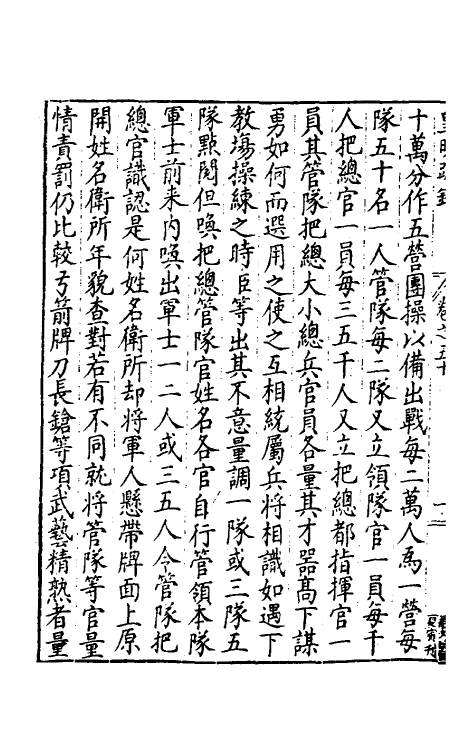 十萬分作五營團操以備出戰每二萬人爲一營每
隊五十名一人管隊每二隊又立領隊官一員每千
人把總官一員每三五千人又立把總都指揮官一
員其管隊把總大小總兵官員各量其才器高下謀
勇如何而選用之使之互相統屬兵將相識如遇下
教場操練之時臣等出其不意量調一隊或三隊五
隊點閱但喚把總管隊官姓名各官自行管領本隊
軍士前来内喚出軍士一二人或三五人令管隊把
總官識認是何姓名衛所却將軍人懸帶牌面上原
開姓名衛所年貌查對若有不同就將管隊等官量
情責罰仍比較弓箭牌刀長鎗等項武藝精熟者量